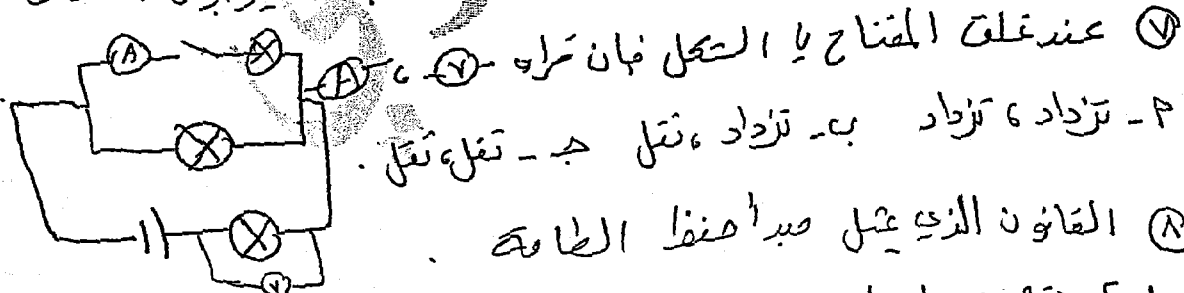 ٧ عند غلق المفتاح يا الشكل فان قراءه V ، A
A X
م - تزداد ، تزداد ب - تزداد ، تقل جـ - تقل ، تقل .
X
٨ القانون الذي يمثل مبدأ حفظ الطاقة .
X
V